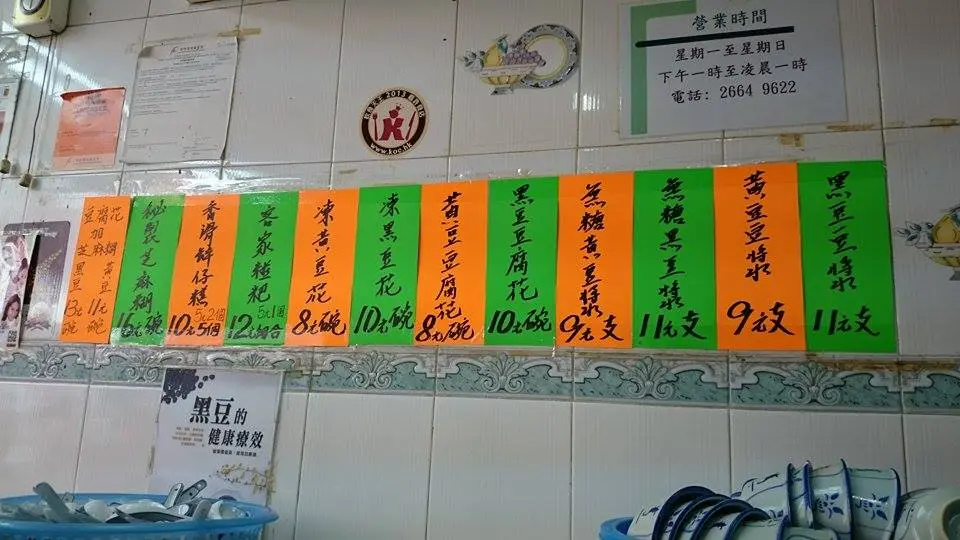 營業時間
星期一至星期日
下午一時至凌晨一時
電話: 2664 9622
2013
K
www.koc.hk
黑豆豆漿
11元支
黃豆豆漿
9元支
無糖黑豆漿
11元支
無糖黃豆漿
9元支
黑豆豆腐花
10元碗
黃豆豆腐花
8元碗
凍黑豆花
10元碗
凍黃豆花
8元碗
客家糍粑
5元1個
12元
香滑缽仔糕
5元2個
10元5個
秘製芝麻糊
碗
豆腐花
加
芝麻糊
黃豆
11元
碗
黑豆
13元
碗
黑豆的
健康療效